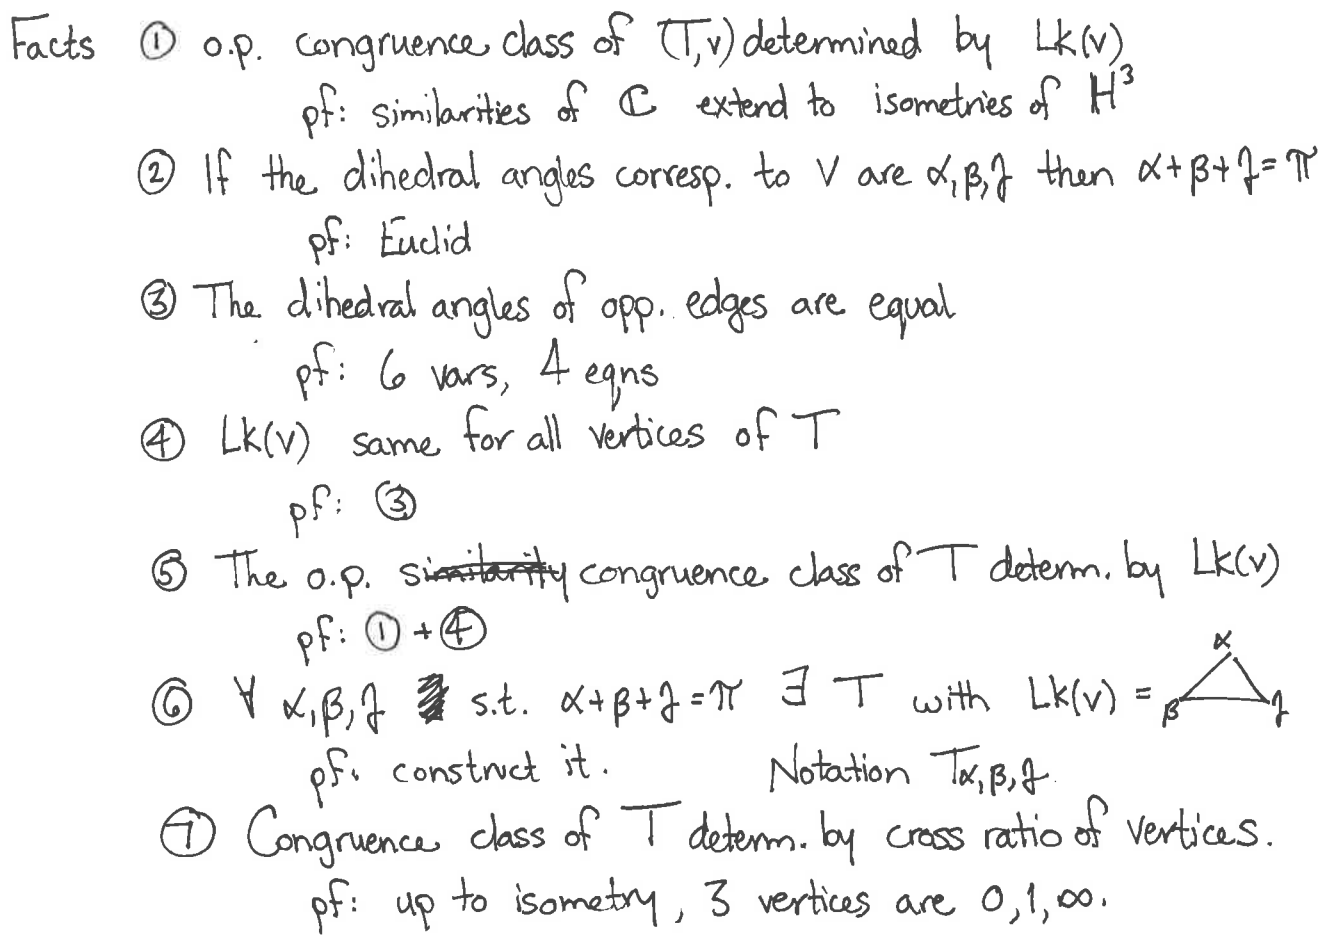 Facts ① o.p. congruence class of (T,v) determined by Lk(v)
pf: similarities of ℂ extend to isometries of H³
② If the dihedral angles corresp. to v are α,β,γ then α+β+γ=π
pf: Euclid
③ The dihedral angles of opp. edges are equal
pf: 6 vars, 4 eqns
④ Lk(v) same for all vertices of T
pf: ③
⑤ The o.p. ~~similarity~~ congruence class of T determ. by Lk(v)
pf: ① + ④
⑥ ∀ α,β,γ s.t. α+β+γ=π ∃ T with Lk(v) = α β γ
pf. construct it. Notation Tα,β,γ.
⑦ Congruence class of T determ. by cross ratio of vertices.
pf: up to isometry, 3 vertices are 0,1,∞.